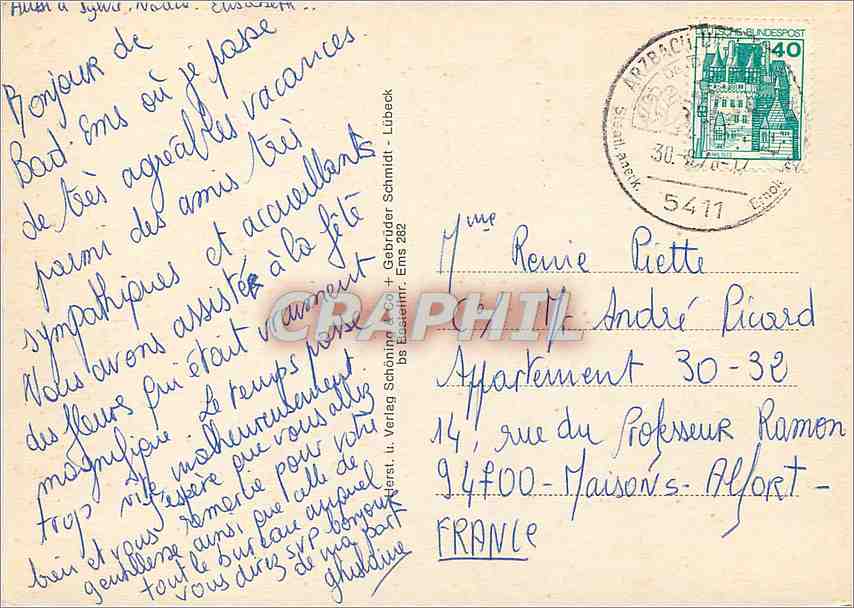 Aussi à Sylvie, Nadia, Elisabeth...
Bonjour de
Bad Ems où je passe
de très agréables vacances
parmi des amis très
sympathiques et accueillants
Nous avons assisté à la fête
des fleurs qui était vraiment
magnifique. Le temps passe
trop vite, malheureusement.
J'espère que vous allez
bien et vous remercie pour votre
gentillesse ainsi que celle de
tout le bureau auquel
vous direz SVP bonjour
de ma part
Ghislaine
Herst. u. Verlag Schöning & Co + Gebrüder Schmidt - Lübeck
bs Bestellnr. Ems 282
CRAPHIL
DEUTSCHE BUNDESPOST
40
ARZBACH
Staatl. anerk.
5411
Mme Renie Piette
c/ Mr André Picard
Appartement 30-32
14, rue du Professeur Ramon
94700 - Maisons-Alfort -
FRANCE